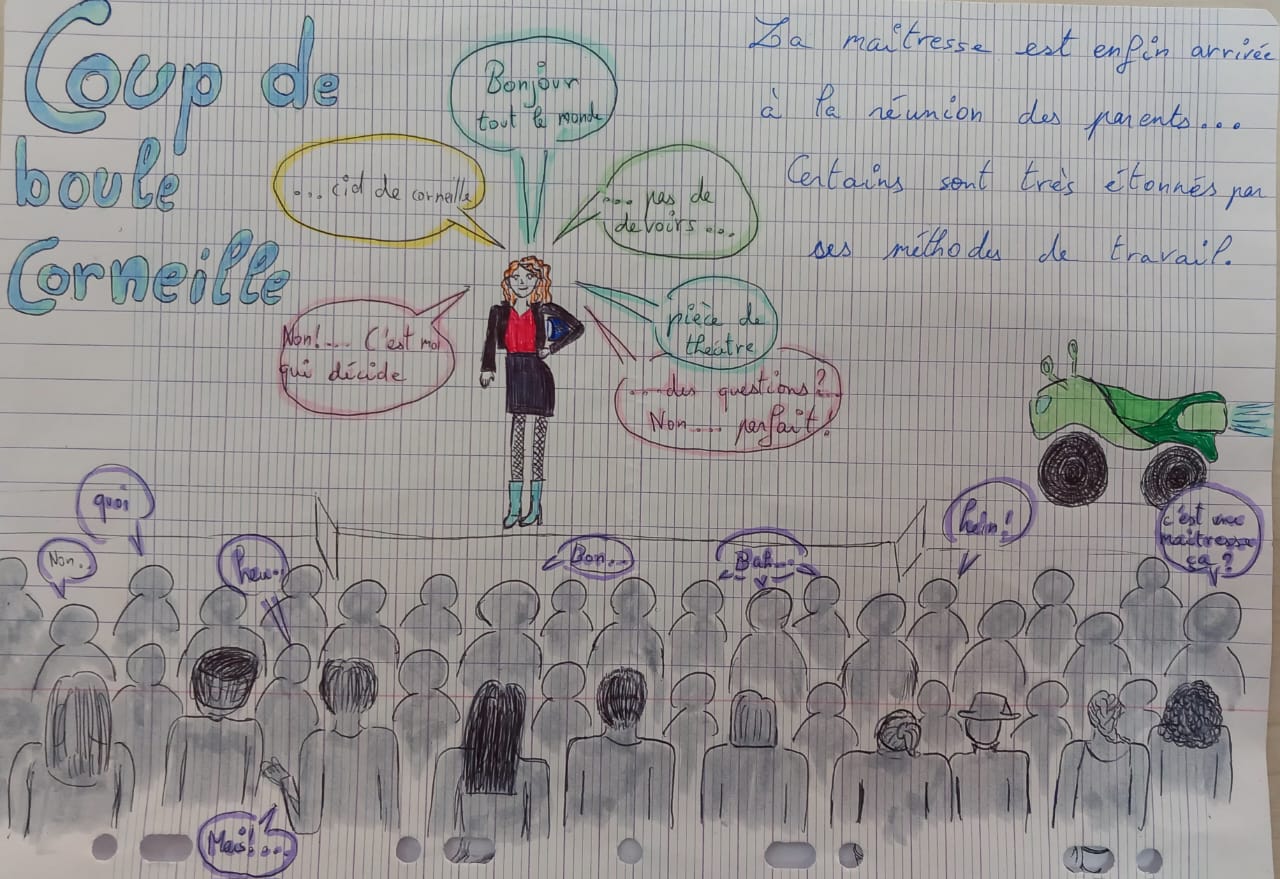 Coup de
boule
Corneille
La maîtresse est enfin arrivée
à la réunion des parents...
Certains sont très étonnés par
ses méthodes de travail.
Bonjour
tout le monde
... cid de corneille
... pas de
devoirs ...
Non!... C'est moi
qui décide
pièce de
theatre
... des questions?
Non... parfait!
quoi
Non..
heu..
Bon...
Bah...
hein!
c'est une
maitresse
ça?
Mais!...